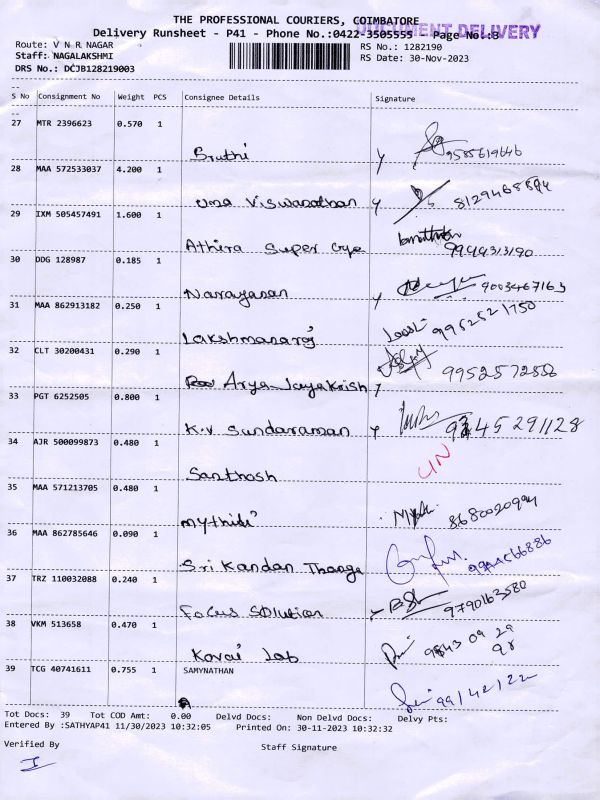 THE PROFESSIONAL COURIERS, COIMBATORE
DOCUMENT DELIVERY
Delivery Runsheet - P41 - Phone No.:0422-3505555 - Page No.:3
Route: V N R NAGAR
RS No.: 1282190
Staff: NAGALAKSHMI
RS Date: 30-Nov-2023
DRS No.: DCJB128219003
--
S No Consignment No Weight PCS Consignee Details Signature
--
27 MTR 2396623 0.570 1
Bruthi y 9585619646
28 MAA 572533037 4.200 1
Uma Viswanathan y
29 IXM 505457491 1.600 1
Athira Super Gye 9944313190
30 DDG 128987 0.185 1
Narayanan y 9003467163
31 MAA 862913182 0.250 1
Lakshmanaraj 9952521750
32 CLT 30200431 0.290 1
Arya Jayakrish y 9952572556
33 PGT 6252505 0.800 1
K.V Sundaraman y 9345291128
34 AJR 500099873 0.480 1
Santhosh
35 MAA 571213705 0.480 1
Mythili 8680020994
36 MAA 862785646 0.090 1
Sri Kandan Thanga 9944566886
37 TRZ 110032088 0.240 1
Focus Solution 9790163580
38 VKM 513658 0.470 1
Kovai Lab 9843 09 29
98
39 TCG 40741611 0.755 1 SAMYNATHAN
99/42/22
Tot Docs: 39 Tot COD Amt: 0.00 Delvd Docs: Non Delvd Docs: Delvy Pts:
Entered By :SATHYAP41 11/30/2023 10:32:05 Printed On: 30-11-2023 10:32:32
Verified By Staff Signature